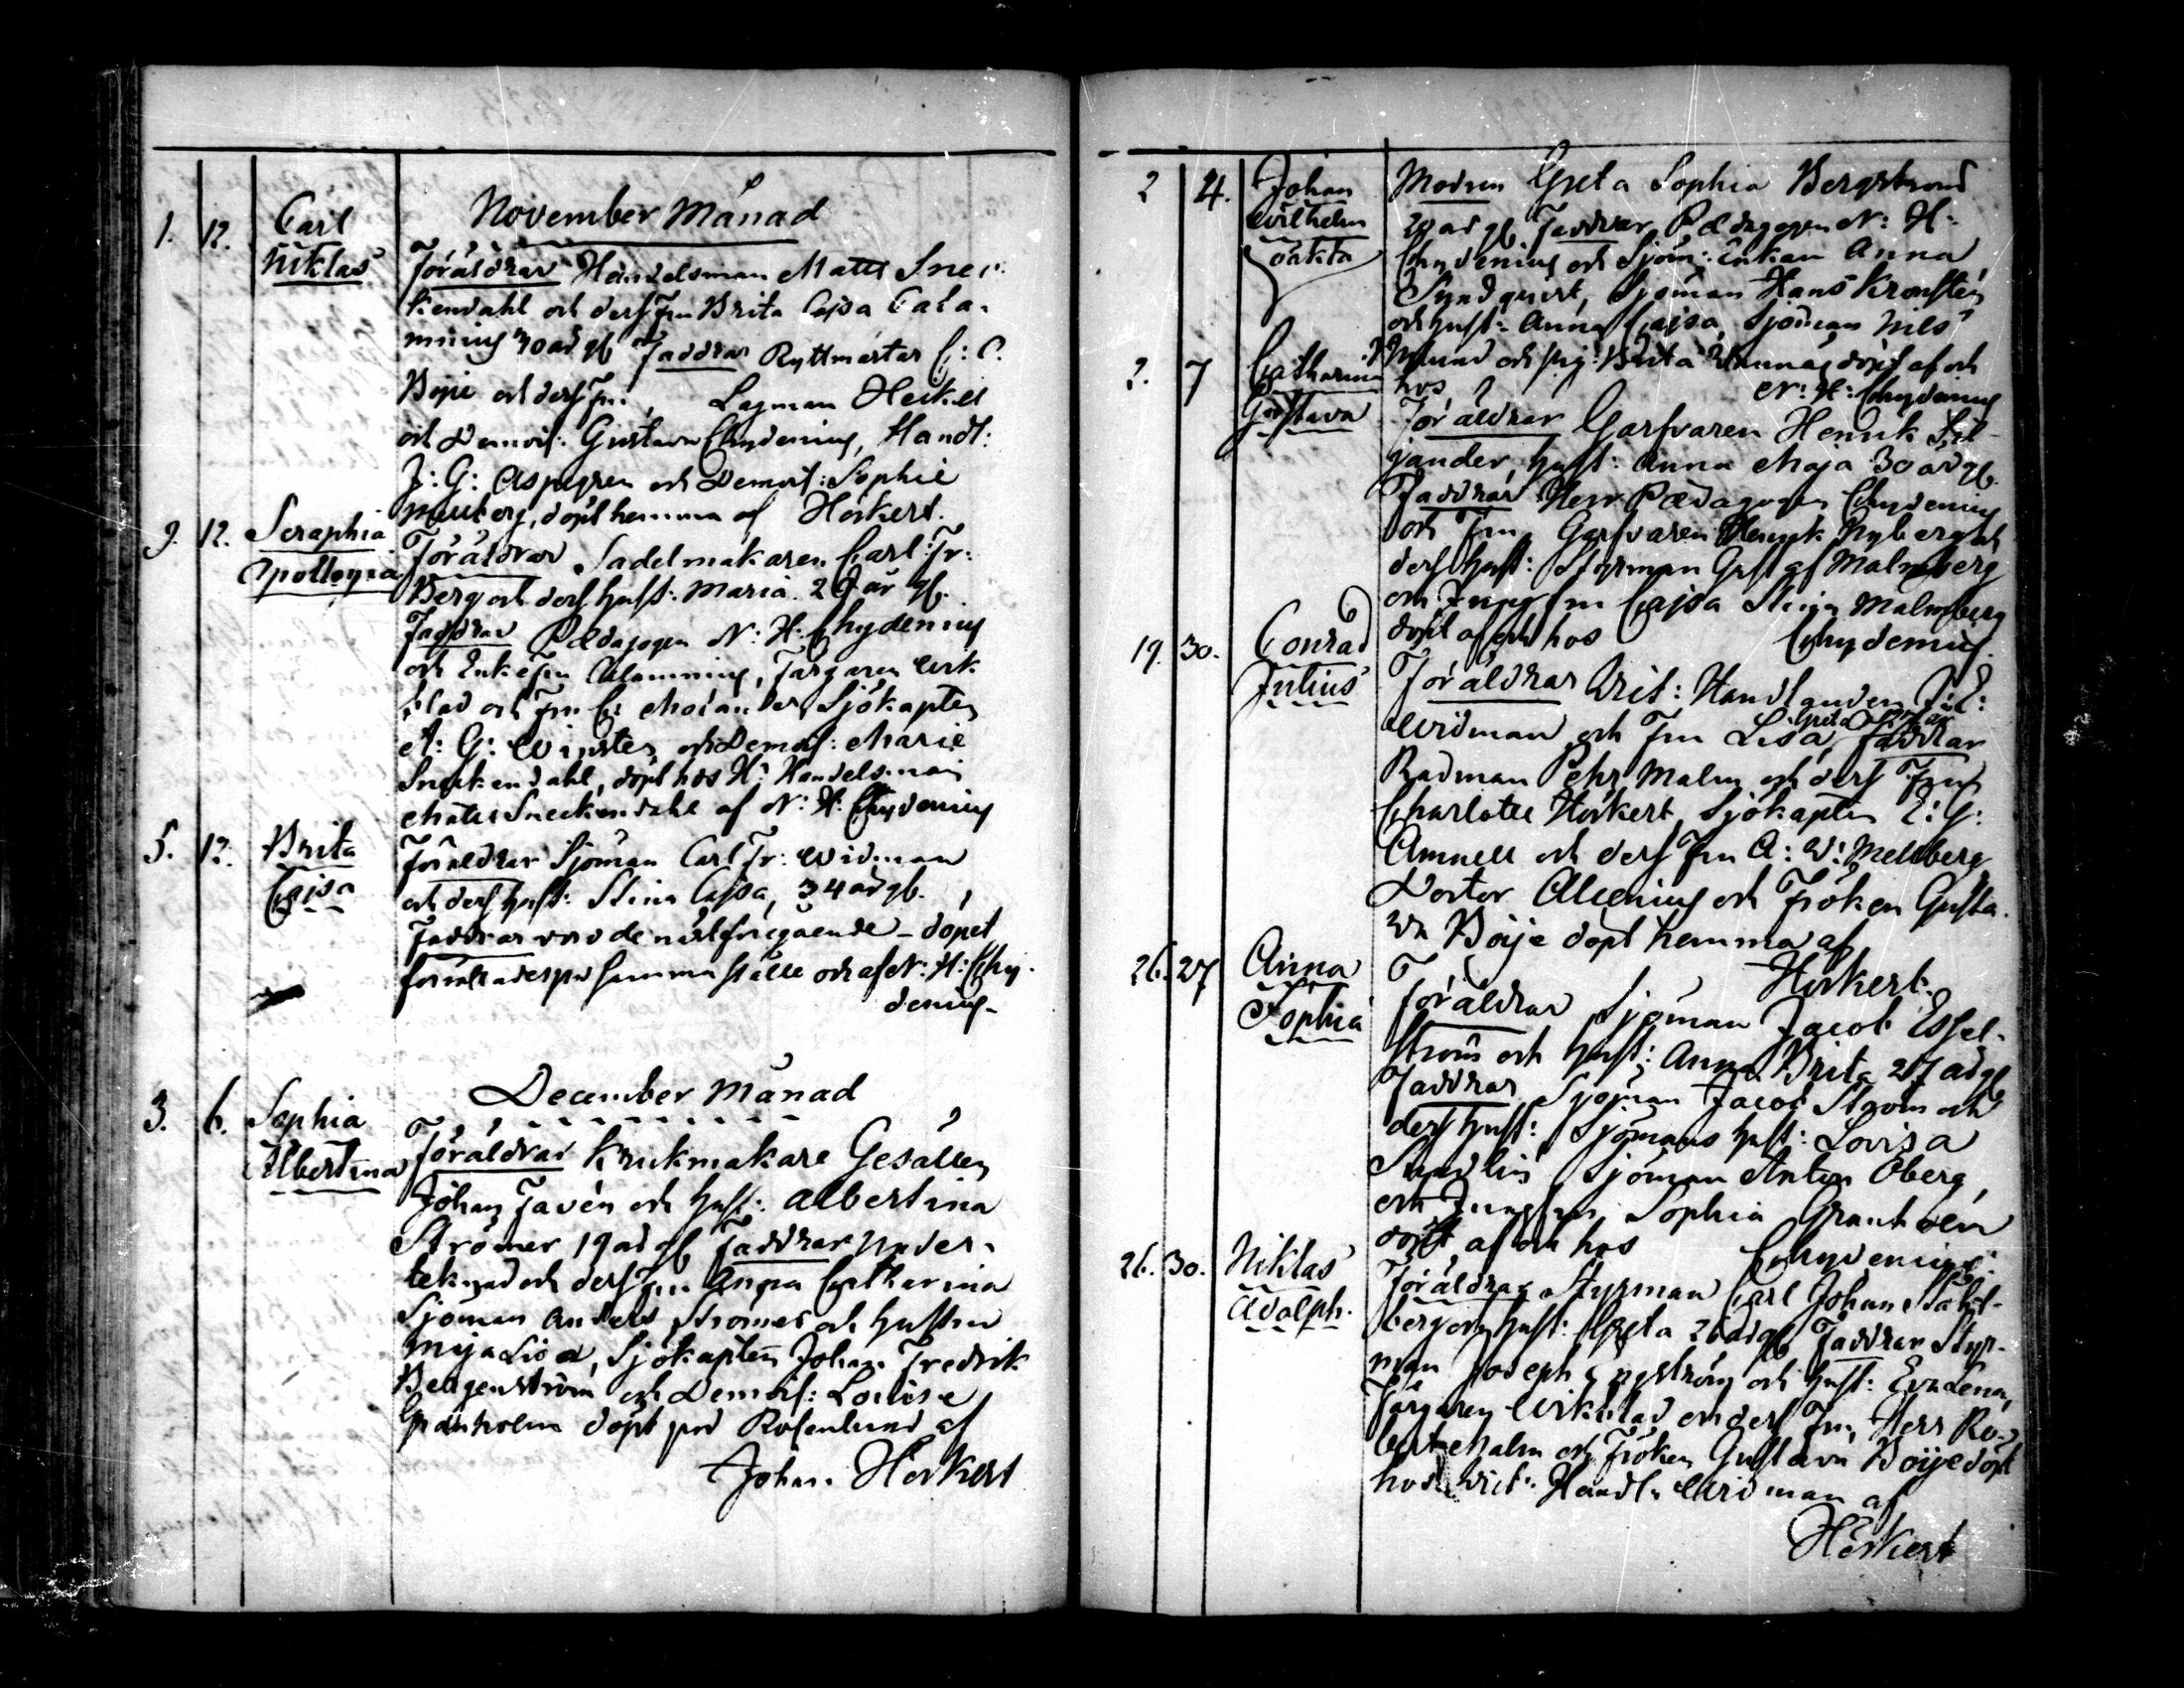 November Månad
1. 12. Carl Niklas
Föräldrar Handelsman Matts Snec-
kendahl och dess Fru Brita Cajsa Cala-
mnius 30 år gl Faddrar Ryttmästar C: C.
Boije och dess Fru, Lagman Heikel
och Demois: Gustava Chydenius, Handl:
J: G: Aspegren och Demois: Sophie
döpt hemma af Horkert.
9. 12. Seraphia Apollonia
Föräldrar Sadelmakaren Carl Fr:
Berg och dess hust: Maria 26 år gl.
Faddrar Pædagogen N: H: Chydenius
och Enkefru Calamnius, Färgaren Wik
blad och Fru C: Morander, Sjökapten
A: G: Winsten och Demois: Marie
Sneckendahl, döpt hos H: Handelsman
Matts Sneckendahl af N: H: Chydenius
5. 12. Brita Cajsa
Föräldrar Sjöman Carl Fr: Widman
och dess hust: Stina Cajsa, 34 år gl.
Faddrar voro de näst föregående – döpet
förrättades på samma ställe och af N: H: Chy-
denius.
December Månad
3. 6. Sophia Albertina
Föräldrar Krukmakare Gesällen
Johan Favén och hust: Albertina
Strömer 19 år gl Faddrar under-
teknad och dess Fru Anna Catharina
Sjöman Anders Strömer och hustru
Maja Lisa, Sjökapten Johan Fredrik
Bergenström och Demois: Louise
Granholm döpt på Rosenlund af
Johan Horkert
2 4. Johan Wilhelm oäkta
Modren Greta Sophia Bergstrand
20 år gl Faddrar Pædagogen N: H:
Chydenius och Sjöm: Enkan Anna
Syndqvist, Sjöman Hans Kronsten
och hust: Anna Cajsa, Sjöman Nils
och pig: Brita döpt af och
hos N: H: Chydenius
2. 7 Catharina Gustava
Föräldrar Garfvaren Henrik Sil-
jander, hust: Anna Maja 30 år gl.
Faddrar Herr Pædagogen Chydenius
och Fru, Garfvaren Henrik Nyberg och
dess hust: Styrman Gustaf Malmberg
och Jungfru Cajsa Stina Malmberg
döpt af och hos Chydenius.
19. 30. Conrad Julius
Föräldrar Vict: Handlanden J: E:
Widman och Fru Lisa Greta Faddrar
Rådman Pehr Malm och dess Fru
Charlotte Horkert, Sjökapten E: G:
Amnell och dess Fru A: W: Mellberg
Doctor Alcenius och Fröken Gusta-
va Boije döpt hemma af
Horkert.
26. 27 Anna Sophia
Föräldrar Sjöman Jacob Essel-
ström och hust: Anna Brita 27 år gl
Faddrar Sjöman Jacob Ström och
dess hust: Sjömans hust: Lovisa
Sundlin Sjöman Anton Öberg,
och Jungfru Sophia Granholm
döpt af och hos Chydenius.
26. 30. Niklas Adolph.
Föräldrar Styrman Carl Johan Stahl-
berg och hust: Greta 26 år gl Faddrar Styr-
man Joseph Engström och hust: Eva Lena,
Färgaren Wikblad och dess Fru, Herr Ro-
bert Malm och Fröken Gustava Boije döpt
hos Vict: Handl: Widman af
Horkert